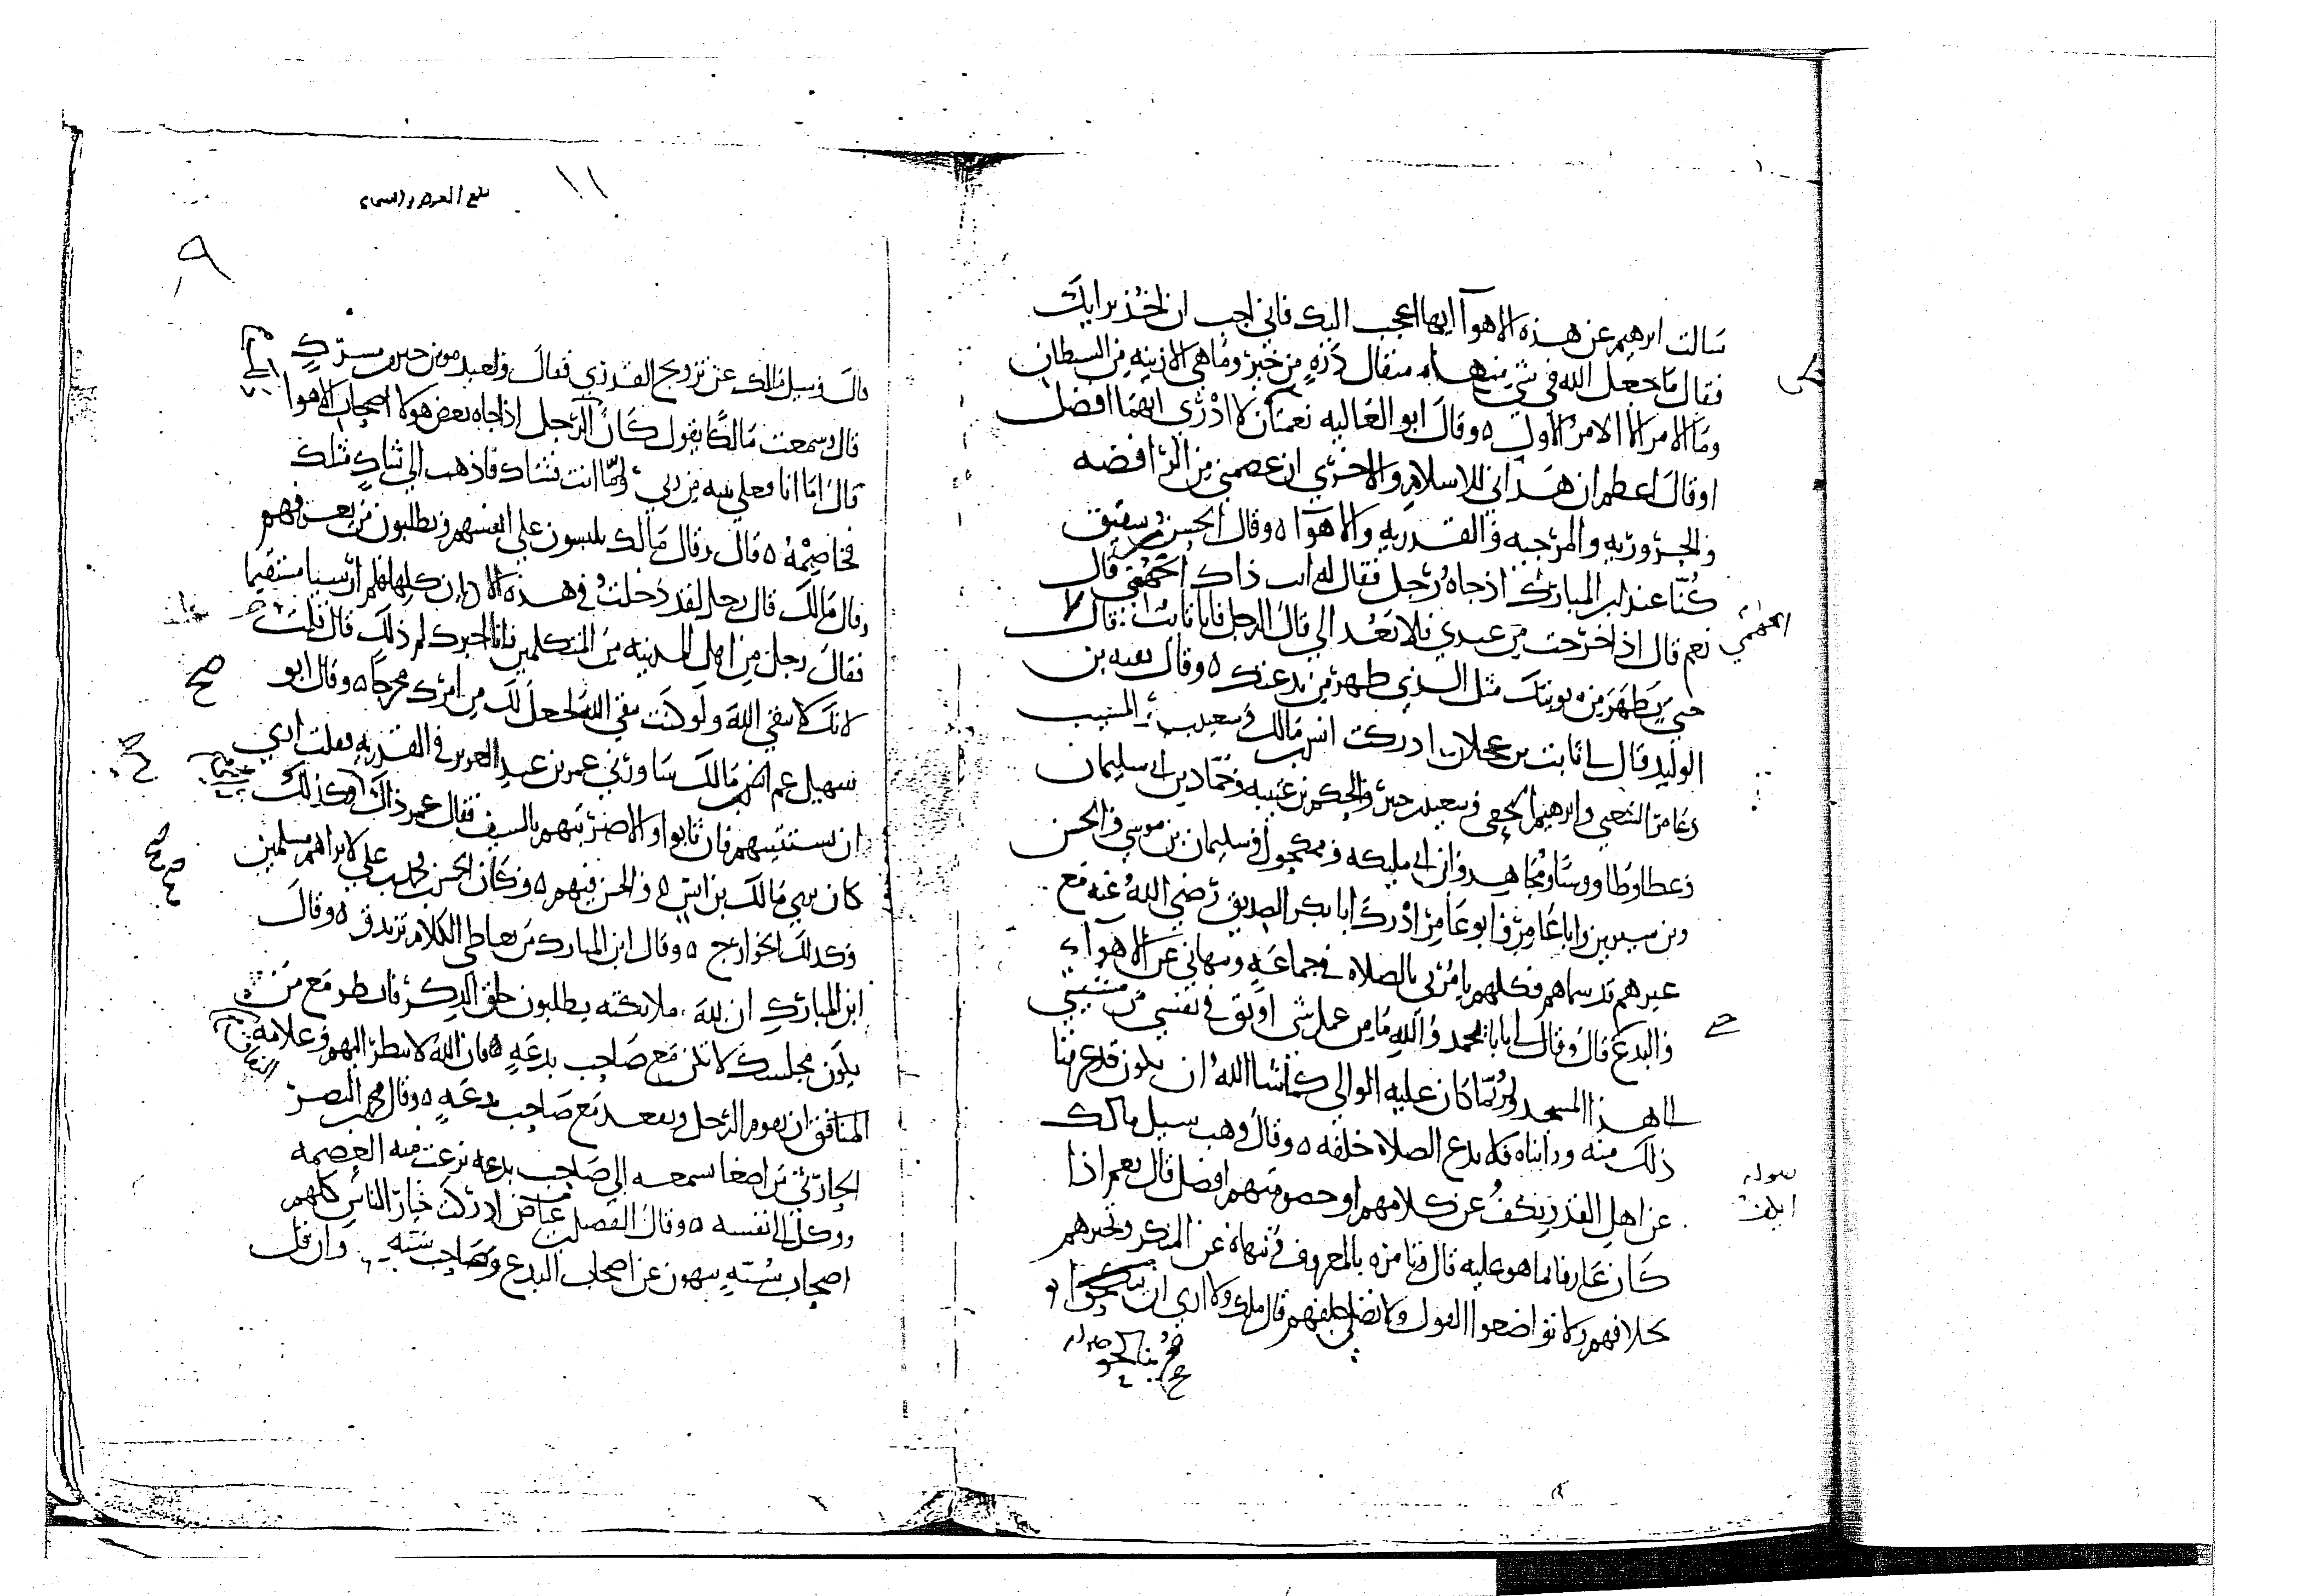 سالت ابرهيم عن هذه الاهوآ ايها اعجب اليك فاني احب ان اخذ برايك
فقال ما جعل الله في شي منها مثقال ذره من خير وما هي الا زينه من الشيطان
وما الامر الا الامر الاول ه وقال ابو العاليه نعمتان لا ادري ايهما افضل
او قال اعظم ان هداني للاسلام والاخري ان عصمني من الرافضه
والحروريه والمرجيه والقدريه والاهوآ ه وقال الحسن بن شقيق
كنا عند ابن المبارك اذ جاه رجل فقال له انت ذاك الجهمي قال
الجهمي
نعم قال اذا خرجت من عندي فلا تعد الي قال الرجل فانا تايب قال لا
حتي يظهر من توبتك مثل الذي ظهر من بدعتك ه وقال بقيه بن
الوليد قال لي ثابت بن عجلان ادركت انس بن مالك وسعيد بن المسيب
وعامر الشعبي وابرهيم النخعي وسعيد بن جبير والحكم بن عتيبه وحماد بن ابي سليمان
وعطا وطاووسا ومجاهد وابن ابي مليكه ومكحول وسليمان بن موسي والحسن
وبن سيرين وابا عامر وابو عامر ادرك ابا بكر الصديق رضي الله عنه مع
غيرهم قد سماهم فكلهم يامرني بالصلاه في جماعه وينهاني عن الاهوآء
والبدع قال وقال لي يابا محمد والله ما من عمل شي اوثق في نفسي من مشيتي
الي هذا المسجد ولربما كان عليه الوالي كما شا الله ان يكون قد عرفنا
ذلك منه ورايناه فلا ندع الصلاه خلفه ه وقال وهب سيل مالك
عن اهل القدر نكف عن كلامهم او خصومتهم افضل قال نعم اذا
كان عارفا بما هو عليه قال ويامره بالمعروف وينهاه عن المنكر ويخبرهم
بخلافهم ولا يواضعوا القول ولا نصلي خلفهم قال ملك ولا اري ان ينكحوا
بلغ العرض والسماع
١١
٩
قال وسيل مالك عن تزويج القدري فقال ولعبد مومن خير من مشرك
قال وسمعت مالكا يقول كان الرجل اذا جاه بعض هولا اصحاب الاهوا
قال اما انا فعلي بينه من ربي واما انت فشاك فاذهب الي شاك مثلك
فخاصمه ه قال وقال مالك يلبسون علي انفسهم ويطلبون من يعرفهم
وقال مالك قال رجل لقد دخلت في هذه الاديان كلها فلم ار شيا مستقيما
فقال رجل من اهل المدينه من المتكلمين فانا اخبرك لم ذلك قال قلت
لانك لا تتقي الله ولو كنت تتقي الله لجعل لك من امرك مخرجا ه وقال ابو
صح
سهيل عم انس بن مالك شاورني عمر بن عبد العزيز في القدريه فقلت اري
ان تستتيبهم فان تابوا والا ضربتهم بالسيف فقال عمر ذاك وكذلك
كان راي مالك بن انس والحسن فيهم ه وكان الحسن
وكذلك الخوارج ه وقال ابن المبارك من تعاطي الكلام تزندق ه وقال
ابن المبارك ان لله ملائكته يطلبون حلق الذكر فانظر مع من
يكون مجلسك لا تكن مع صاحب بدعه فان الله لا ينظر اليهم وعلامه
النفاق
المنافق ان يقوم الرجل ويقعد مع صاحب بدعه ه وقال محمد بن النضر
الحارثي من اصغا سمعه الي صاحب بدعه نزعت منه العصمه
ووكل الي نفسه ه وقال الفضيل بن عياض ادركت خيار الناس كلهم
اصحاب سنه ينهون عن اصحاب البدع وصاحب سنه وان قل